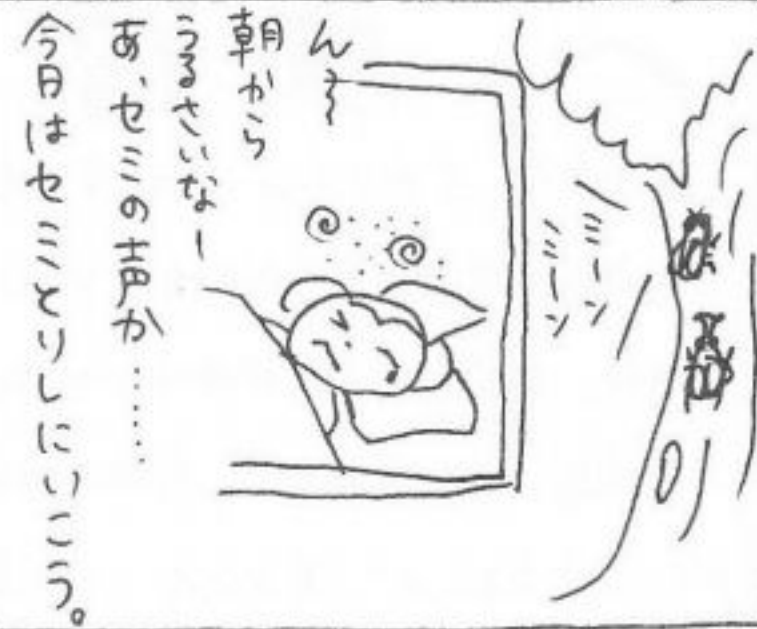 ミーン
ミーン
ん〜
朝から
うるさいなー
あ、セミの声か……
今日はセミとりしにいこう。